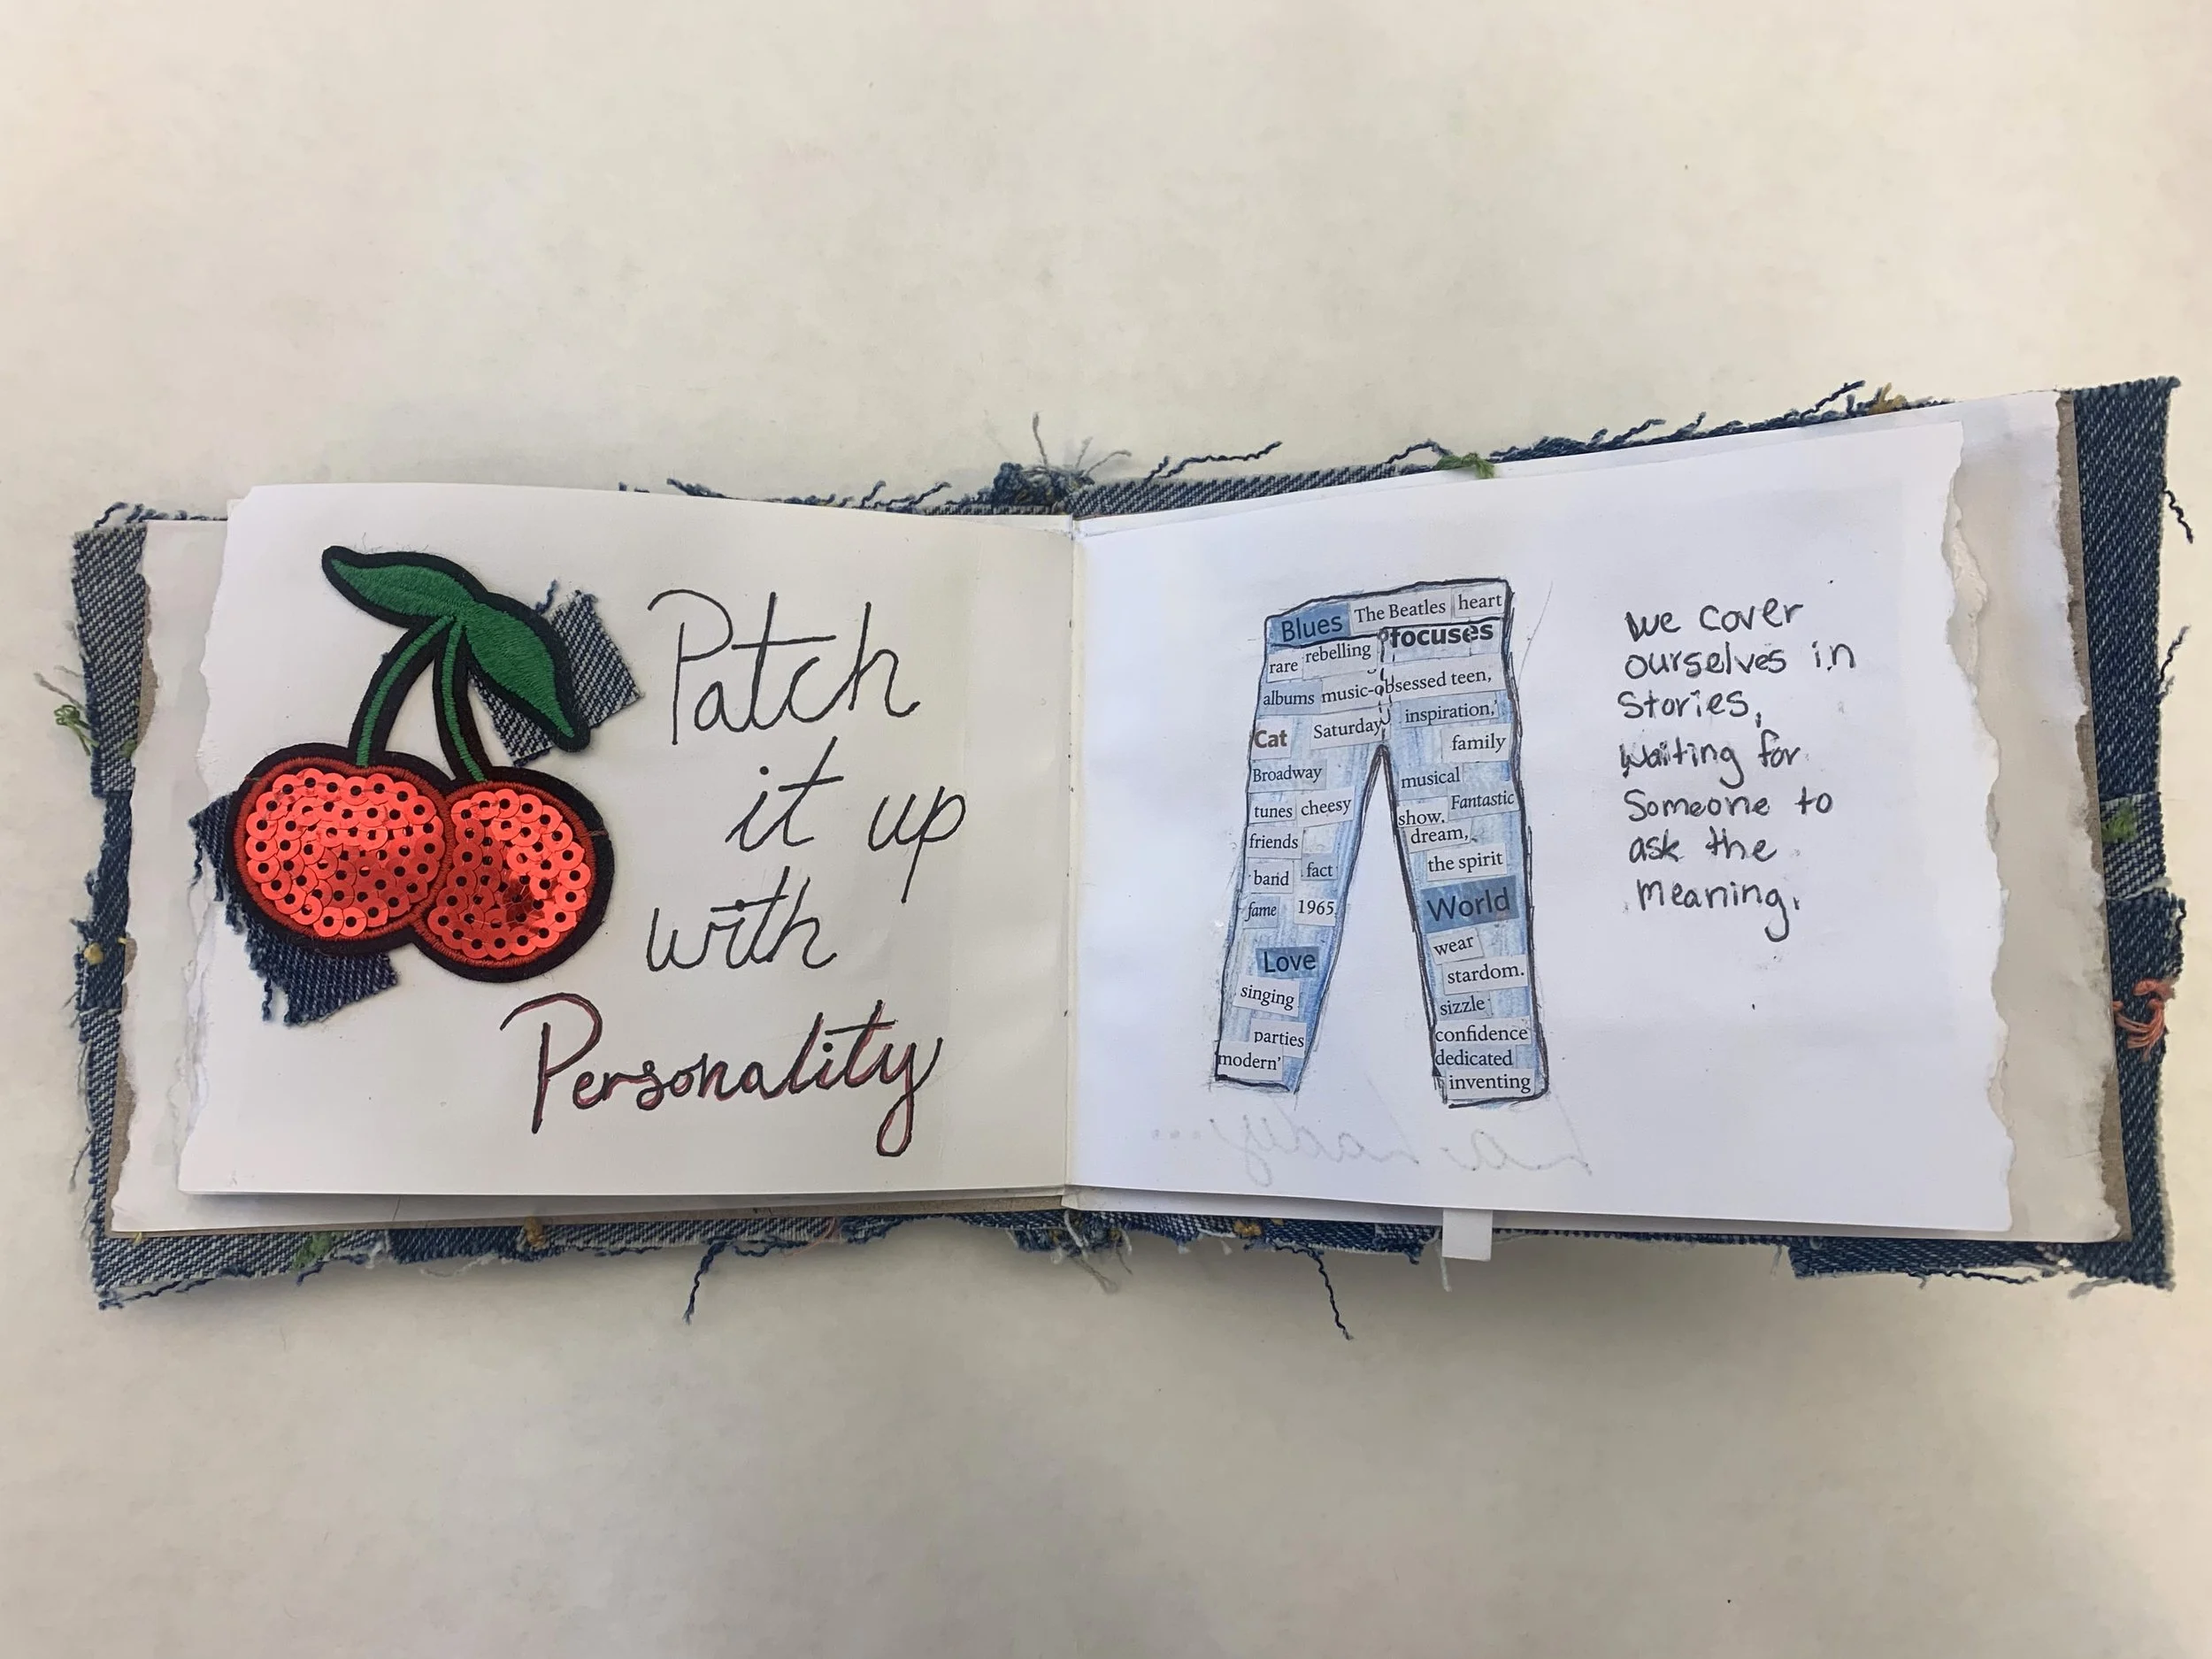 Patch
it up
with
Personality
Blues The Beatles heart
focuses
rare rebelling
albums music-obsessed teen,
Saturday inspiration,'
Cat family
Broadway musical
tunes cheesy Fantastic
show.
friends dream,
band fact the spirit
fame 1965 World
Love wear
singing stardom.
sizzle
parties confidence
modern' dedicated
inventing
We cover
ourselves in
Stories,
Waiting for
Someone to
ask the
Meaning.